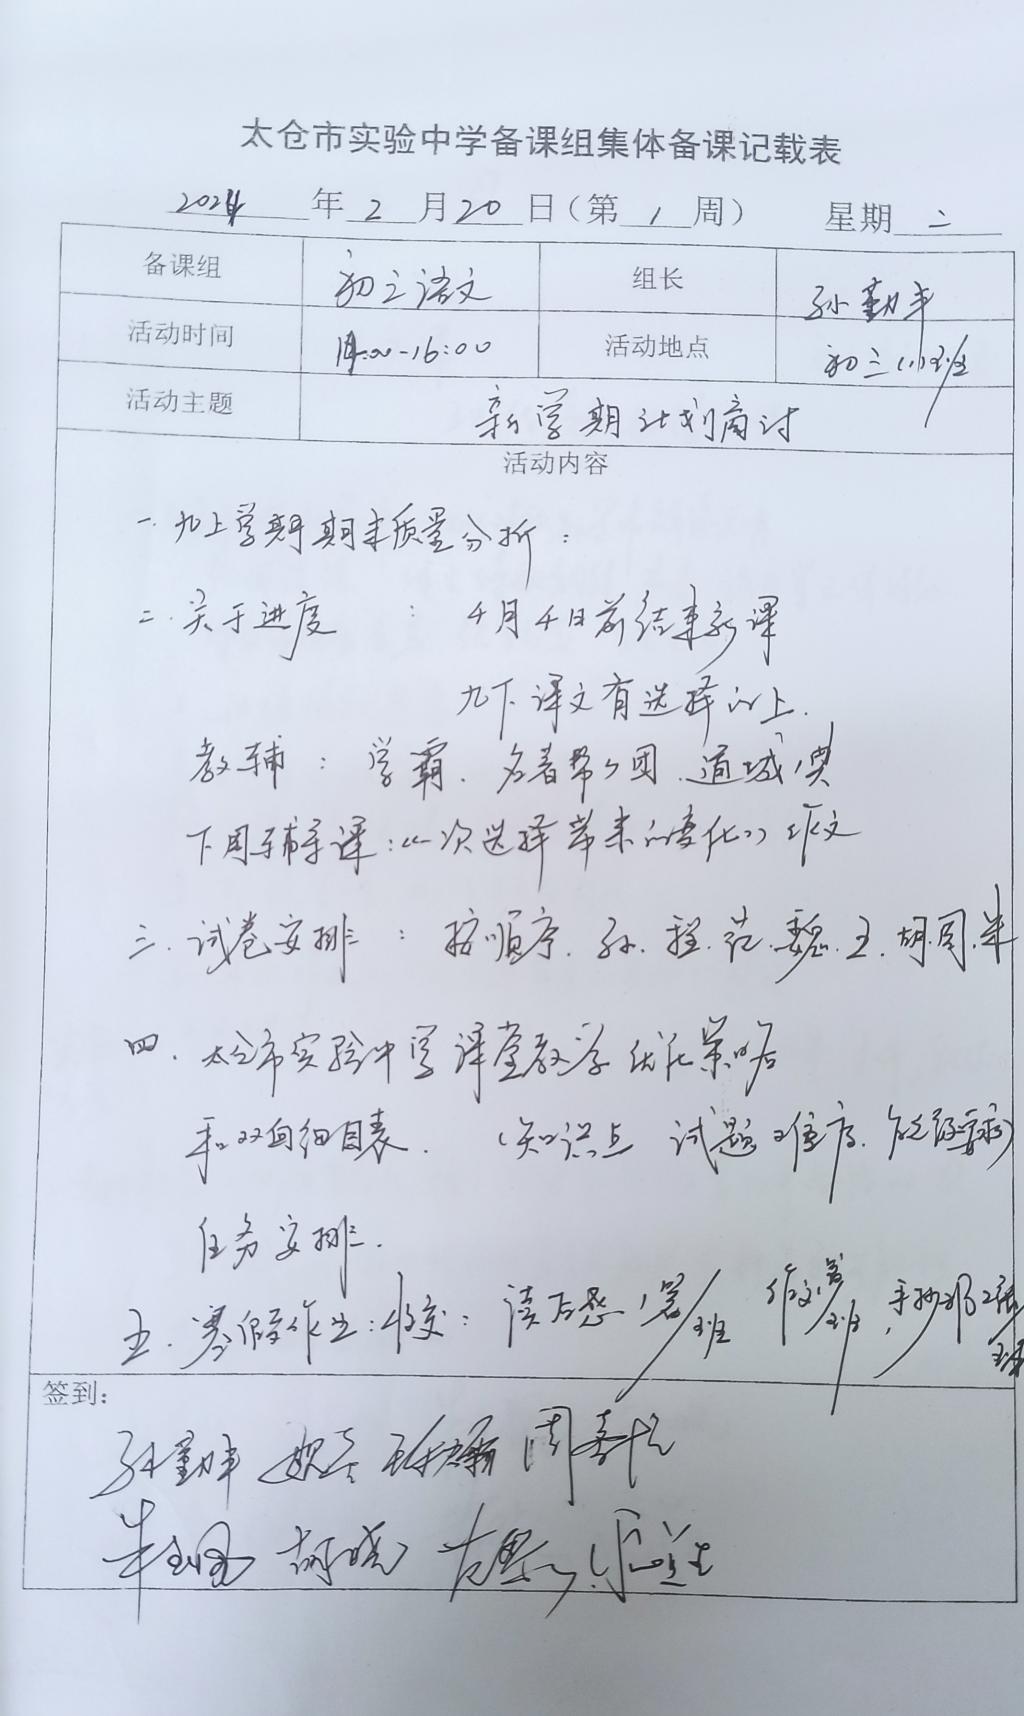 太仓市实验中学备课组集体备课记载表
2024年2月20日（第1周） 星期二
备课组 初三语文 组长 孙勤丰
活动时间 14:00-16:00 活动地点 初三(1)班
活动主题 新学期计划商讨
活动内容
一.九上学期期末质量分析：
二.关于进度 ： 4月4日前结束新课
九下课文有选择的上.
教辅 ： 学霸.名著
下周辅导课：《一次选择带来的变化》作文
三.试卷安排 ： 按顺序.孙.程.范.魏.王.胡.周.朱
四.太仓市实验中学课堂教学优化策略
和双向细目表. （知识点 试题难度.能级要求）
任务安排.
五.寒假作业：收交：读后感1篇/班 作文1篇/班，手抄报2张/班
签到：
孙勤丰 周嘉
胡晓